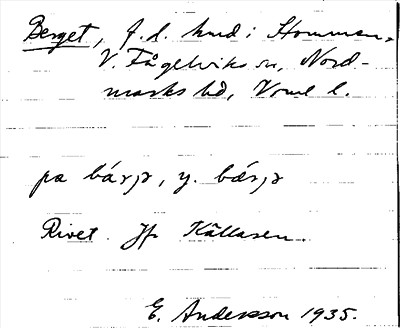 Berget, f.d. hmd i Hommen,
V. Fågelviks sn, Nord-
marks hd, Vrml l.
pa bárjə, y. bǽrjə
Rivet. Jfr Källåsen.
E. Andersson 1935.